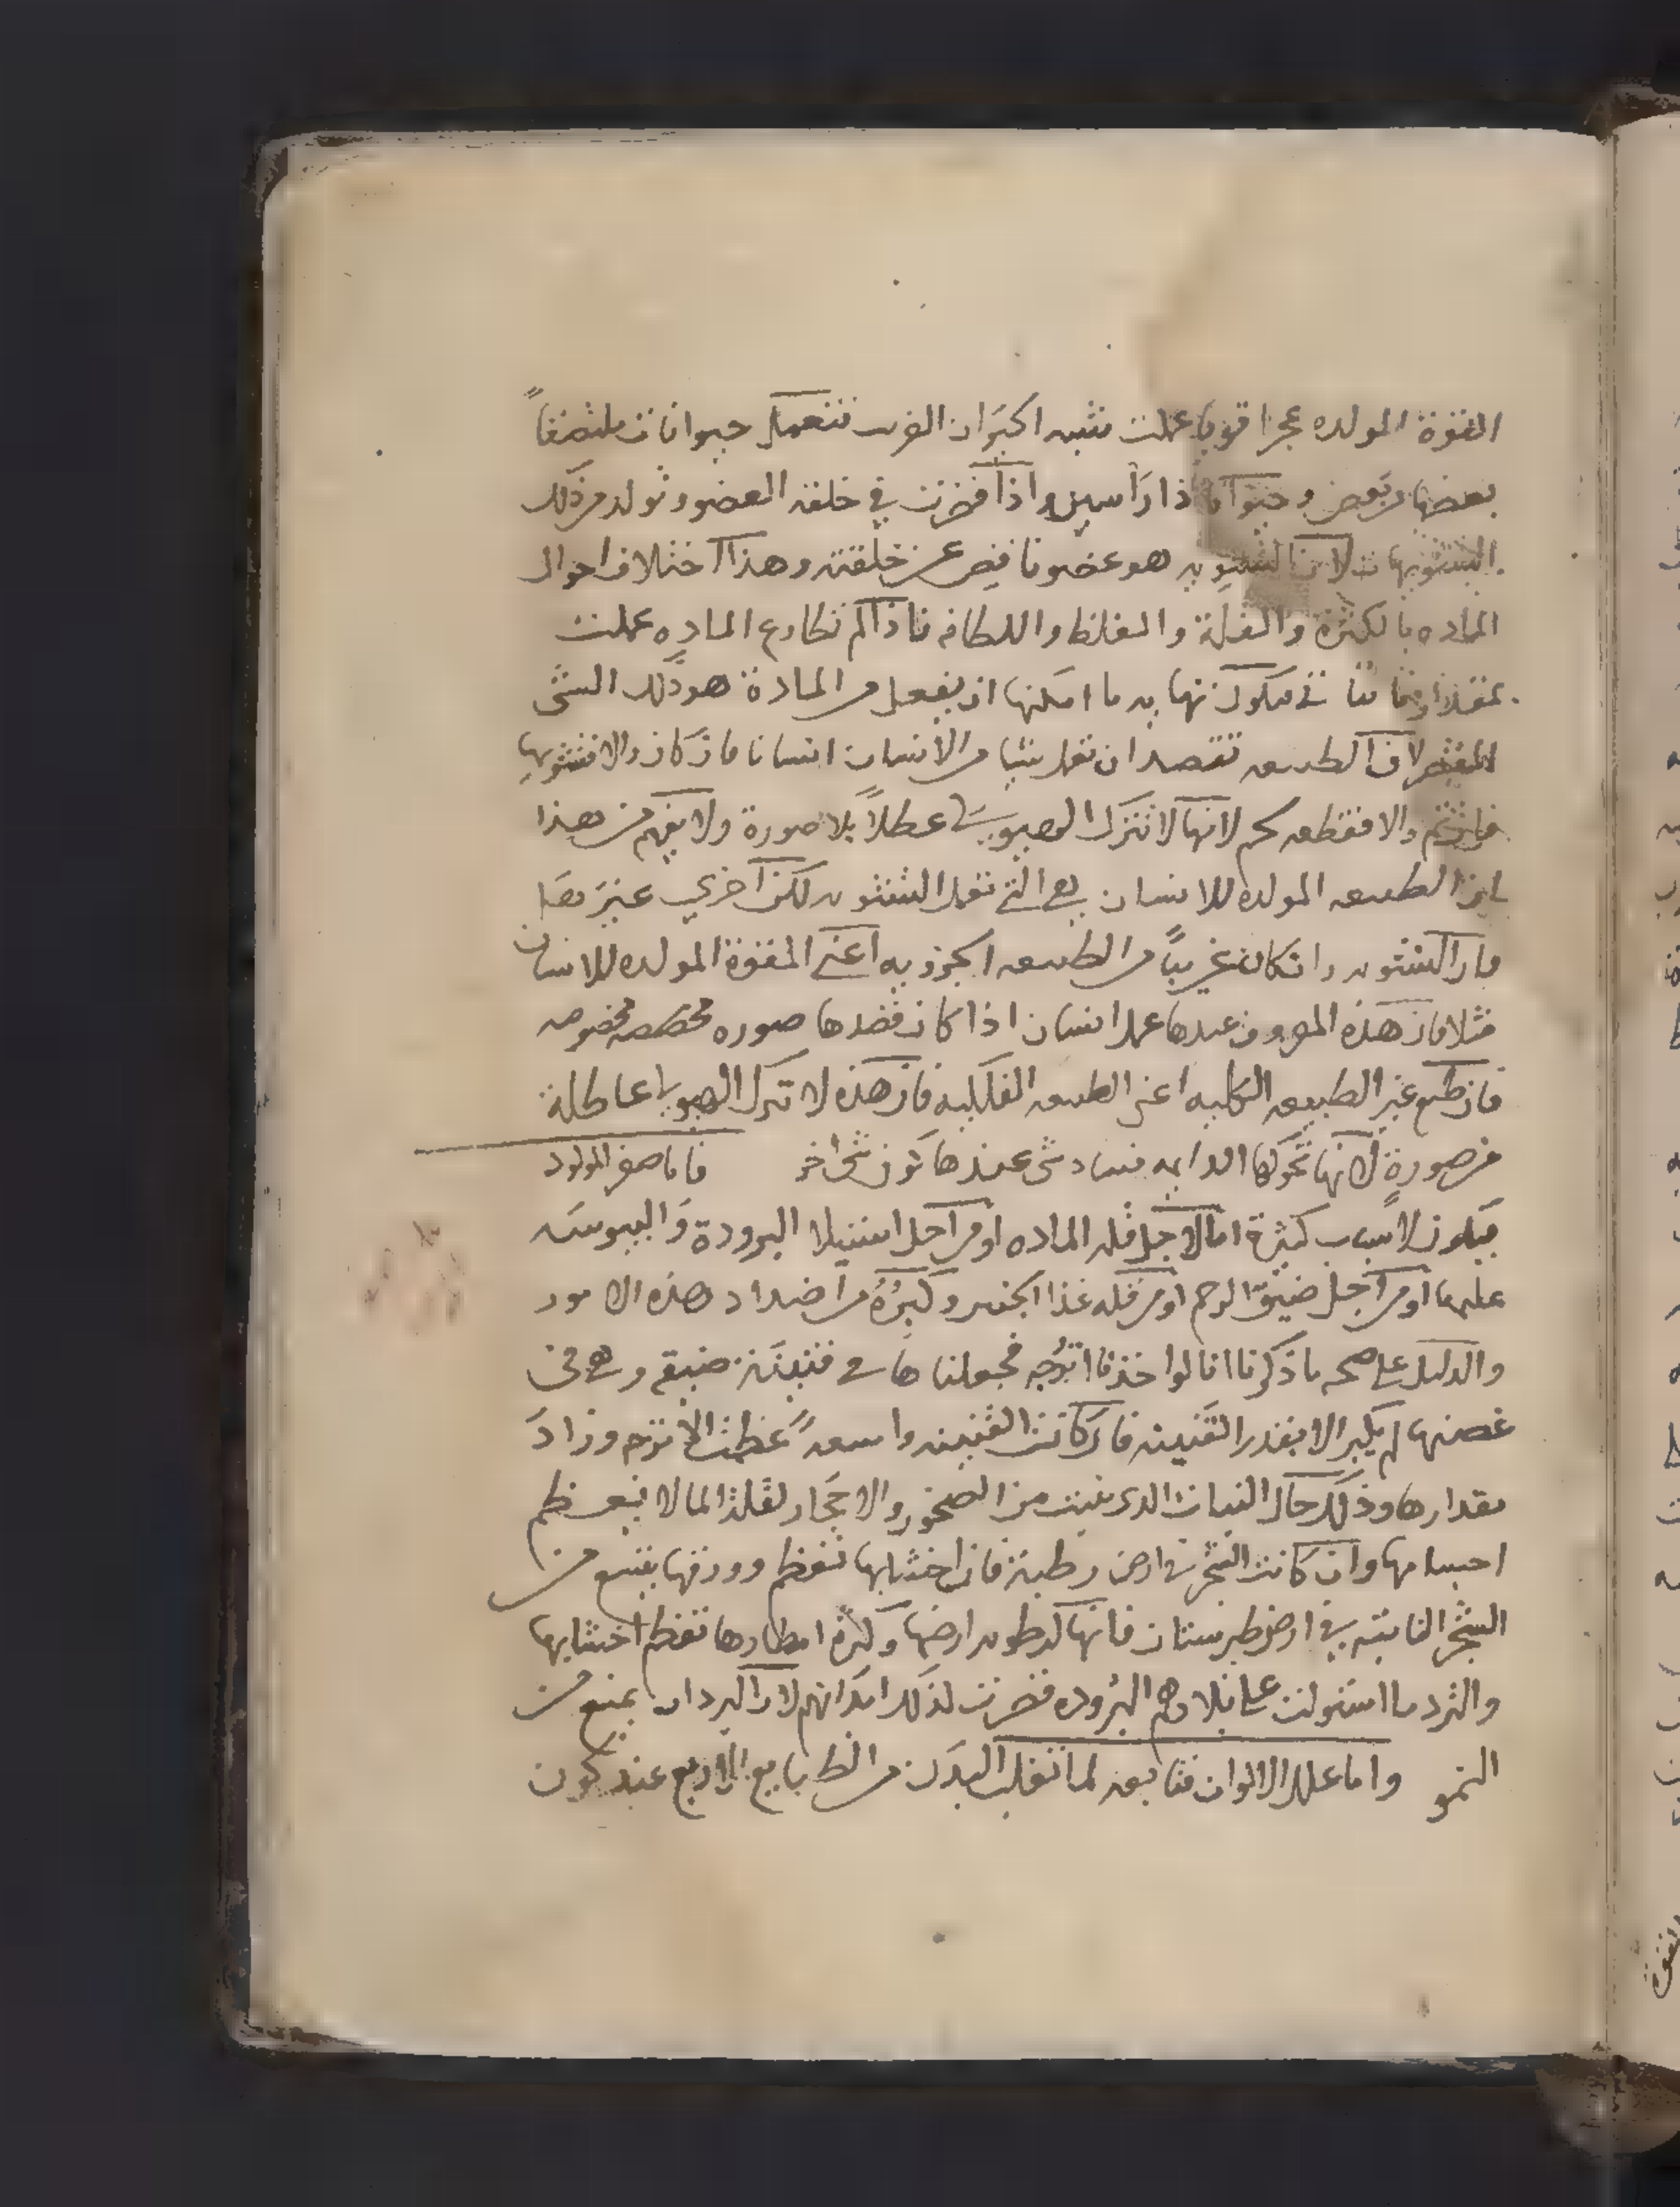 القوة المولده عجزا قويا عملت شبيه اكبر ان القرب فتعمل حيوانات ملتصقاً
بعضها ببعض وحيوانا ذا رأسين واذا قصرت في خلقه العضو تولد من ذلك
التشويهات لان التشويه هو عضو ناقص عن خلقته وهذا اختلاف احوال
الماده بالكثرة والقلة والغلظ واللطافه فاذا لم تطاوع الماده عملت
فيكون نهايه ما امكنها ان يفعل من المادة هو ذلك الشى
لان الطبيعه تقصد ان تعمل شيا من الانسان انسانا فان كان والا فتشويها
فان تم والا فقطعه لحم لانها لا تترك الهيولى عطلاً بلا صورة ولا يفهم من هذا
ان الطبيعه المولده للانسان هي التي تعمل التشويه لكن اخرى غيرها
فان التشويه وان كان غريباً من الطبيعه الجزويه اعنى القوة المولده للانسان
مثلا فان هذه القوه عندها عمل انسان اذا كان قصدها صوره محصله مخصوصه
فان طبع غير الطبيعه الكليه اعنى الطبيعه الفلكيه فان هذه لا تترك الهيولى عاطلة
من صورة لانها تحركها الدايمه فساد شى عندها كون شى اخر فاما صغر المولود
فيكون لاسباب كثيرة اما لاجل قله الماده او من اجل استيلا البرودة واليبوسه
عليها او من اجل ضيق الرحم او من قله غذا الجنين وكبره من اضداد هذه الامور
والدليل على صحه ما ذكرنا انا لو اخذنا اترجه فجعلناها فى قنينة ضيقه وهى فى
غصنها لم يكبر الا بقدر القنينه فان كانت القنينه واسعهً عظمت الاترجه وزاد
مقدارها وذلك حال النبات الذى ينبت من الصخور والاحجار لقلة الما لا يعظم
اجسامها وان كانت الشجر فى ارض رطبة فان اخشابها تعظم وورقها يتسع من
الشجر النابته فى ارض طبرستان فانها لرطوبه ارضها وكثرة امطارها تعظم اخشابها
والترك ما استولت على بلادهم البروده قصرت لذلك ابدانهم لان البرد ان يمنع من
النمو واما علل الالوان فتابعه لما تغلب البدن من الطبايع الاربع عند كون